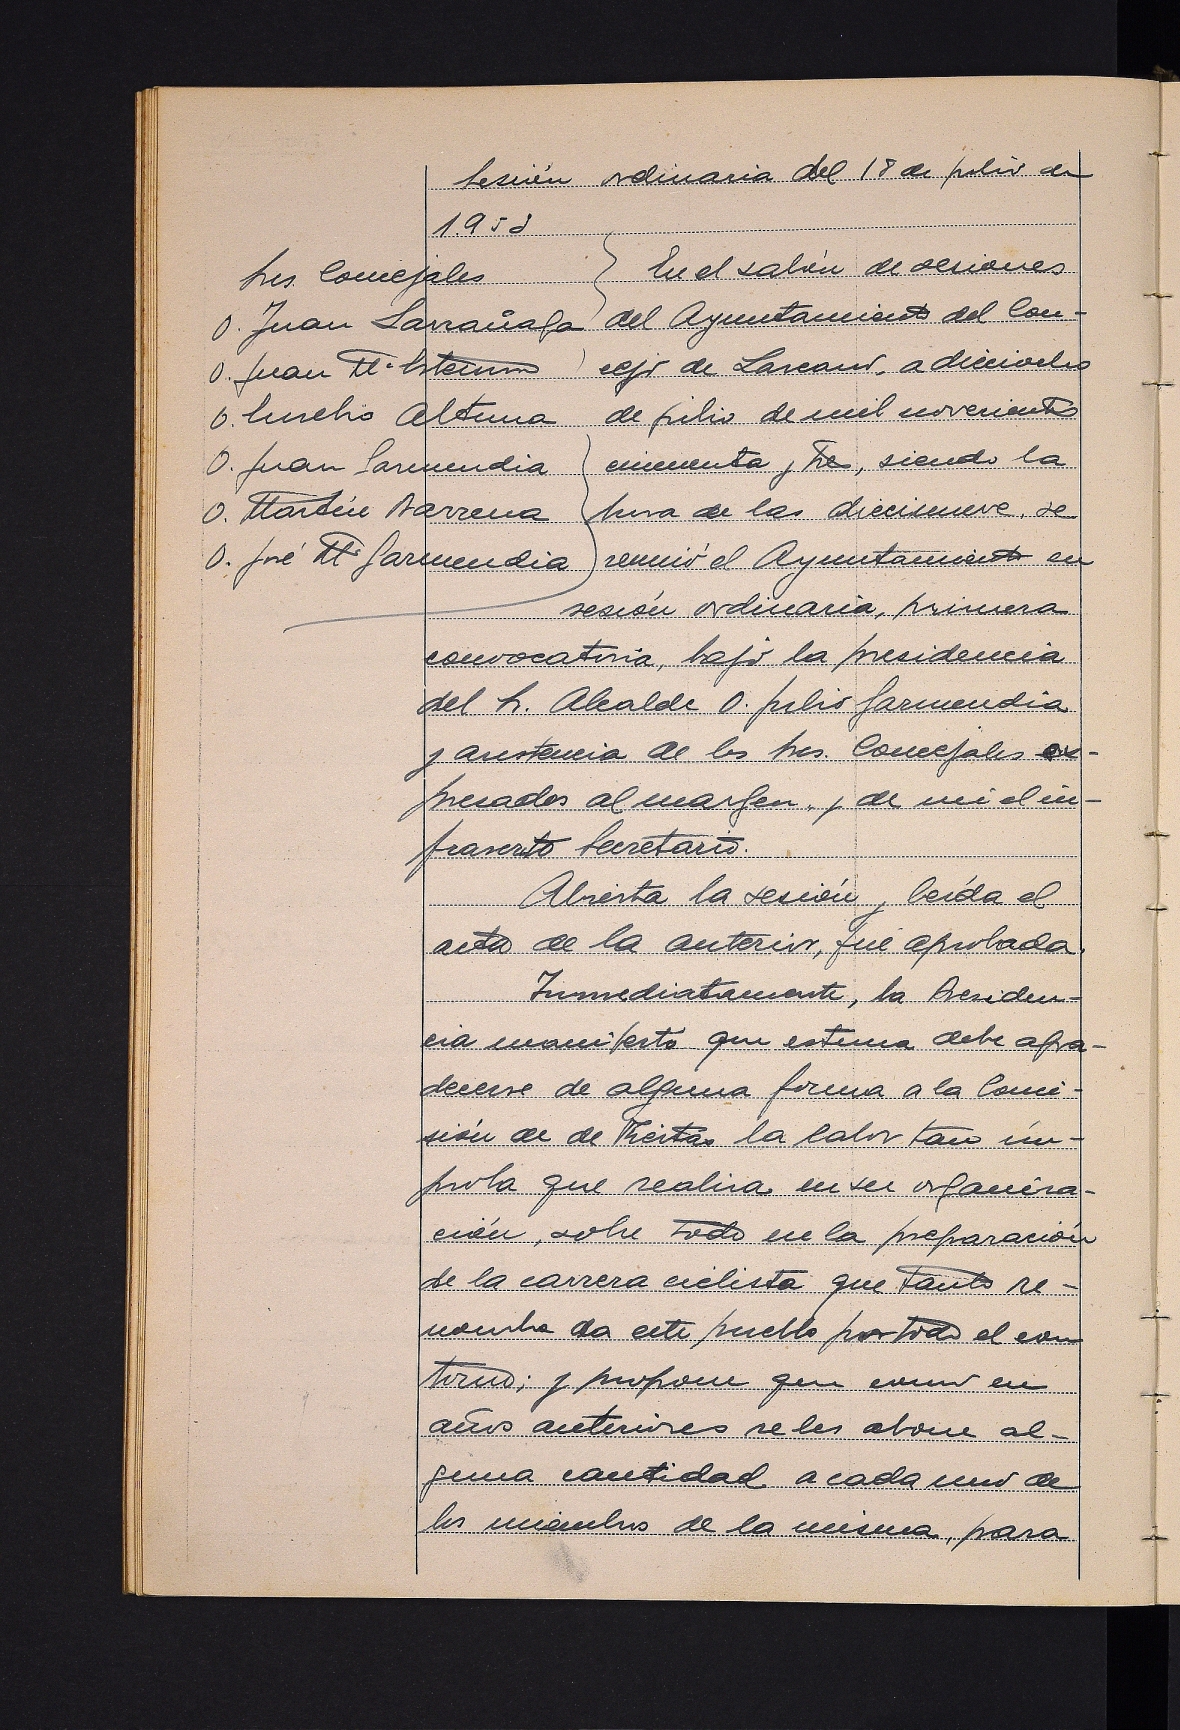 Sesión ordinaria del 18 de julio de
1953
Sres. Concejales
D. Juan Larrañaga
D. Juan Mª
D. Eusebio Altuna
D. Juan Garmendia
D. Martín Barrena
D. José Mª Garmendia
En el salón de sesiones
del Ayuntamiento del Con-
cejo de Lazcano, a dieciocho
de julio de mil novecientos
cincuenta y tres, siendo la
hora de las diecinueve, se
reunió el Ayuntamiento en
sesión ordinaria, primera
convocatoria, bajo la presidencia
del Sr. Alcalde D. Julio Garmendia
y asistencia de los Sres. Concejales ex-
presados al margen, y de mi el in-
frascrito Secretario.
Abierta la sesión y leída el
acta de la anterior, fué aprobada.
Inmediatamente, la Presiden-
cia manifestó que estima debe agra-
decerse de alguna forma a la Comi-
sión de de Fiestas la labor tan ím-
proba que realiza en su organiza-
ción, sobre todo en la preparación
de la carrera ciclista que tanto re-
nombre da este pueblo por todo el con
torno; y propone que como en
años anteriores se les abone al-
guna cantidad a cada uno de
los miembros de la misma, para